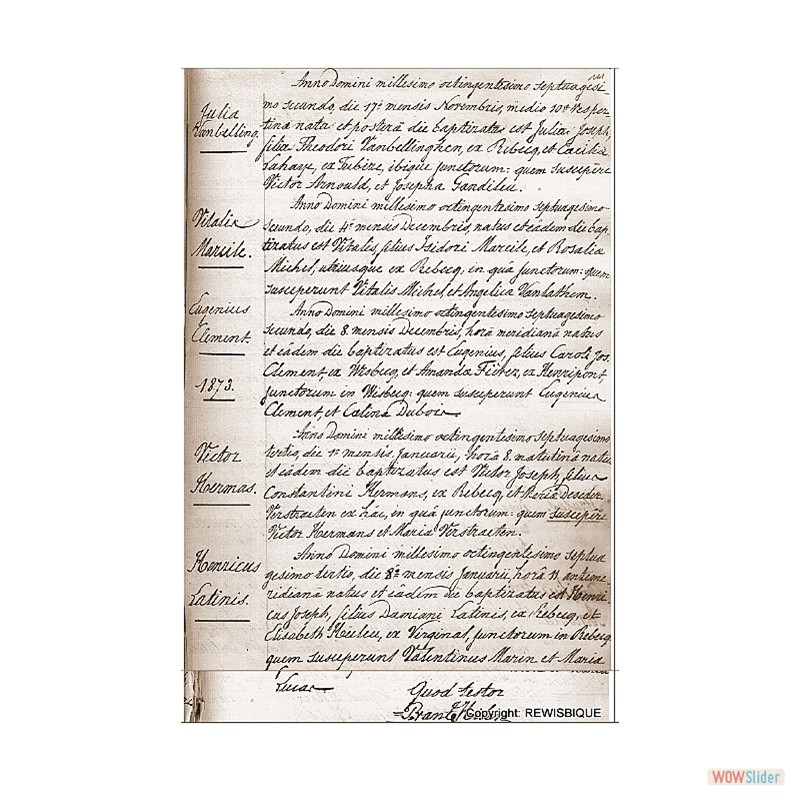 Anno Domini millesimo octingentesimo septuagesi-
Julia
Vanbelling.
mo secundo, die 17ª mensis Novembris, medio 10ª vesper
tina nata et posterâ die baptizata est Julia Joseph,
filia Theodori Vanbellinghen, ex Rebecq, et Cæcilia
Lahaye, ex Tubize, ibique junctorum: quem suscepêre
Victor Arnould, et Josepha Gandileu.
Vitalis
Marcile.
Anno Domini millesimo octingentesimo septuagesimo
secundo, die 4ª mensis Decembris, natus et eâdem die bap
tizatus est Vitalis, filius Isidori Marcile, et Rosalia
Michel, utriusque ex Rebecq, in quâ junctorum: quem
susceperunt Vitalis Michel, et Angelica Vanlathem.
Eugenius
Clement.
Anno Domini millesimo octingentesimo septuagesimo
secundo, die 8. mensis Decembris, horâ meridianâ natus
et eâdem die baptizatus est Eugenius, filius Caroli Jos.
Clement, ex Wisbecq, et Amanda Fiévez, ex Hennipont,
junctorum in Wisbecq: quem susceperunt Eugenius
Clement, et Catina Dubois
1873.
Victor
Hermas.
Anno Domini millesimo octingentesimo septuagesimo
tertio, die 1ª mensis Januarii, horâ 8. matutinâ natus
et eâdem die baptizatus est Victor Joseph, filius
Constantini Hermans, ex Rebecq, et Maria Desider.
Verstraeten ex hâc, in quâ junctorum: quem suscepêre
Victor Hermans et Maria Verstraeten.
Henricus
Latinis.
Anno Domini millesimo octingentesimo septua
gesimo tertio, die 8ª mensis Januarii, horâ 11 anteme
ridianâ natus et eâdem die baptizatus est Henri
cus Joseph, filius Damiani Latinis, ex Rebecq, et
Elisabeth Heuleu, ex Virginal, junctorum in Rebecq
quem susceperunt Valentinus Marin et Maria
Lucas
Quod testor
Copyright: REWISBIQUE
WOWSlider